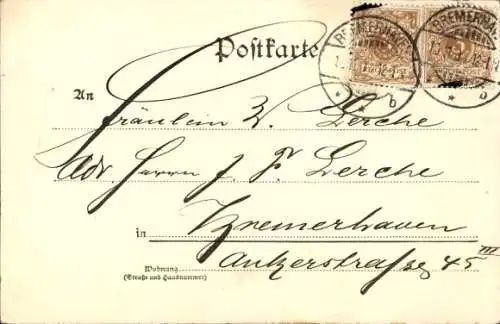 Postkarte
BREMERHAVEN
BREMERHAVEN
b
b
An
Fräulein W. Lerche
Adr Herrn J. F. Lerche
in Bremerhaven
Wohnung
(Straße und Hausnummer)
Ankerstraße 45 III